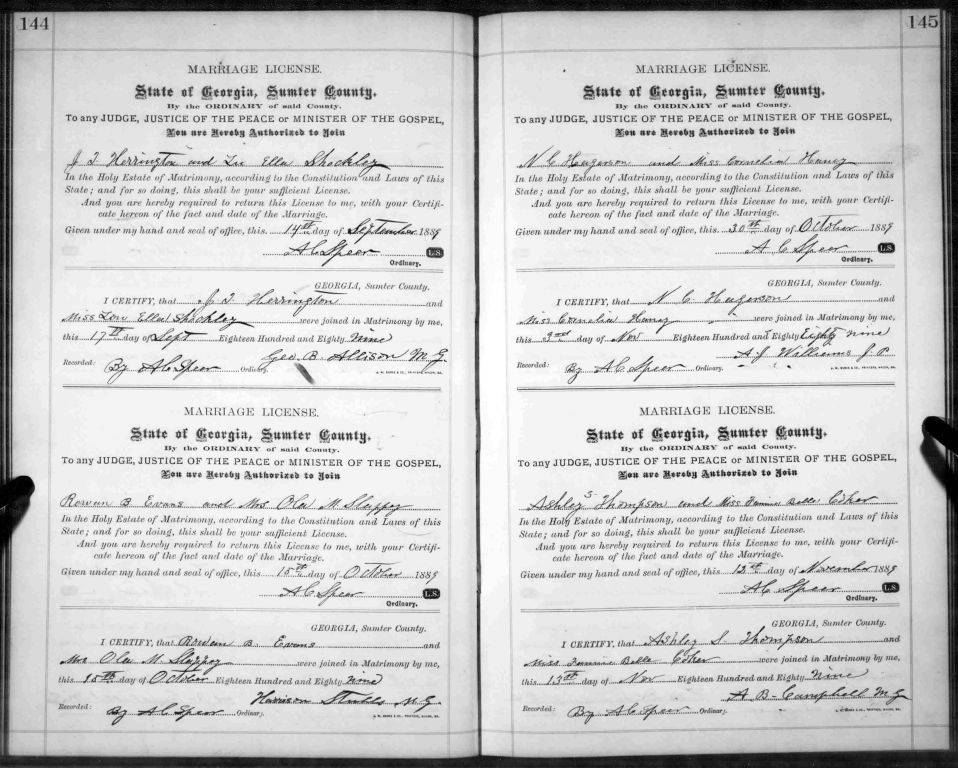 144
MARRIAGE LICENSE.
State of Georgia, Sumter County.
By the ORDINARY of said County.
To any JUDGE, JUSTICE OF THE PEACE or MINISTER OF THE GOSPEL,
You are Hereby Authorized to Join
J T Herrington and Lu Ella Shockley
In the Holy Estate of Matrimony, according to the Constitution and Laws of this
State; and for so doing, this shall be your sufficient License.
And you are hereby required to return this License to me, with your Certifi-
cate hereon of the fact and date of the Marriage.
Given under my hand and seal of office, this 14th day of September 1889
A C Speer L.S.
Ordinary.
GEORGIA, Sumter County.
I CERTIFY, that J T Herrington and
Miss Lou Ella Shockley were joined in Matrimony by me,
this 17th day of Sept Eighteen Hundred and Eighty Nine
Geo. B. Allison M.G.
Recorded: By A C Speer Ordinary.
MARRIAGE LICENSE.
State of Georgia, Sumter County.
By the ORDINARY of said County.
To any JUDGE, JUSTICE OF THE PEACE or MINISTER OF THE GOSPEL,
You are Hereby Authorized to Join
Rowan B. Evans and Mrs Ola M. Slappey
In the Holy Estate of Matrimony, according to the Constitution and Laws of this
State; and for so doing, this shall be your sufficient License.
And you are hereby required to return this License to me, with your Certifi-
cate hereon of the fact and date of the Marriage.
Given under my hand and seal of office, this 15th day of October 1889
A C Speer L.S.
Ordinary.
GEORGIA, Sumter County.
I CERTIFY, that Rowan B. Evans and
Mrs Ola M. Slappey were joined in Matrimony by me,
this 15th day of October Eighteen Hundred and Eighty Nine
Harrison M.G.
Recorded: By A C Speer Ordinary.
145
MARRIAGE LICENSE.
State of Georgia, Sumter County.
By the ORDINARY of said County.
To any JUDGE, JUSTICE OF THE PEACE or MINISTER OF THE GOSPEL,
You are Hereby Authorized to Join
N C and Miss Cornelia Haney
In the Holy Estate of Matrimony, according to the Constitution and Laws of this
State; and for so doing, this shall be your sufficient License.
And you are hereby required to return this License to me, with your Certifi-
cate hereon of the fact and date of the Marriage.
Given under my hand and seal of office, this 30th day of October 1889
A C Speer L.S.
Ordinary.
GEORGIA, Sumter County.
I CERTIFY, that N. C. and
Miss Cornelia Haney were joined in Matrimony by me,
this 3rd day of Nov Eighteen Hundred & Eighty Nine
A J Williams J P
Recorded: By A C Speer Ordinary.
MARRIAGE LICENSE.
State of Georgia, Sumter County.
By the ORDINARY of said County.
To any JUDGE, JUSTICE OF THE PEACE or MINISTER OF THE GOSPEL,
You are Hereby Authorized to Join
Ashley S Thompson and Miss Fannie Belle Coker
In the Holy Estate of Matrimony, according to the Constitution and Laws of this
State; and for so doing, this shall be your sufficient License.
And you are hereby required to return this License to me, with your Certifi-
cate hereon of the fact and date of the Marriage.
Given under my hand and seal of office, this 13th day of November 1889
A C Speer L.S.
Ordinary.
GEORGIA, Sumter County.
I CERTIFY, that Ashley S. Thompson and
Miss Fannie Belle Coker were joined in Matrimony by me,
this 13th day of Nov Eighteen Hundred and Eighty Nine
A B Campbell M G
Recorded: By A C Speer Ordinary.